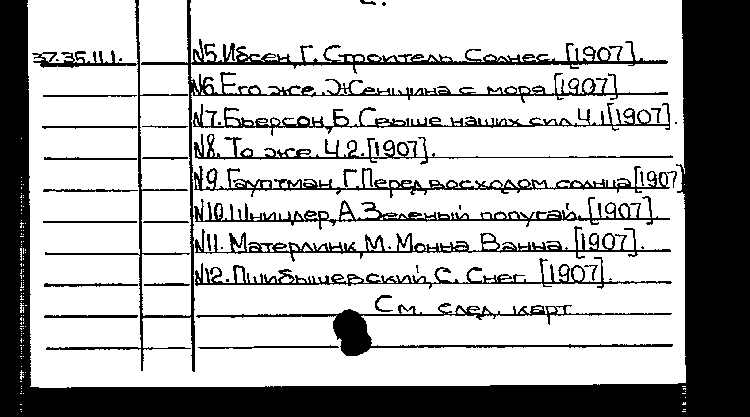 2.
37.35.11.1. N5. Ибсен, Г. Строитель Солнес. [1907].
N6. Его же. Женщина с моря [1907]
N7. Бьерсон, Б. Свыше наших сил. Ч.1 [1907].
N8. То же. Ч.2. [1907].
N9. Гауптман, Г. Перед восходом солнца [1907]
N10. Шницлер, А. Зеленый попугай. [1907].
N11. Матерлинк, М. Монна Ванна. [1907].
N12. Пшибышевский, С. Снег. [1907].
См. след. карт